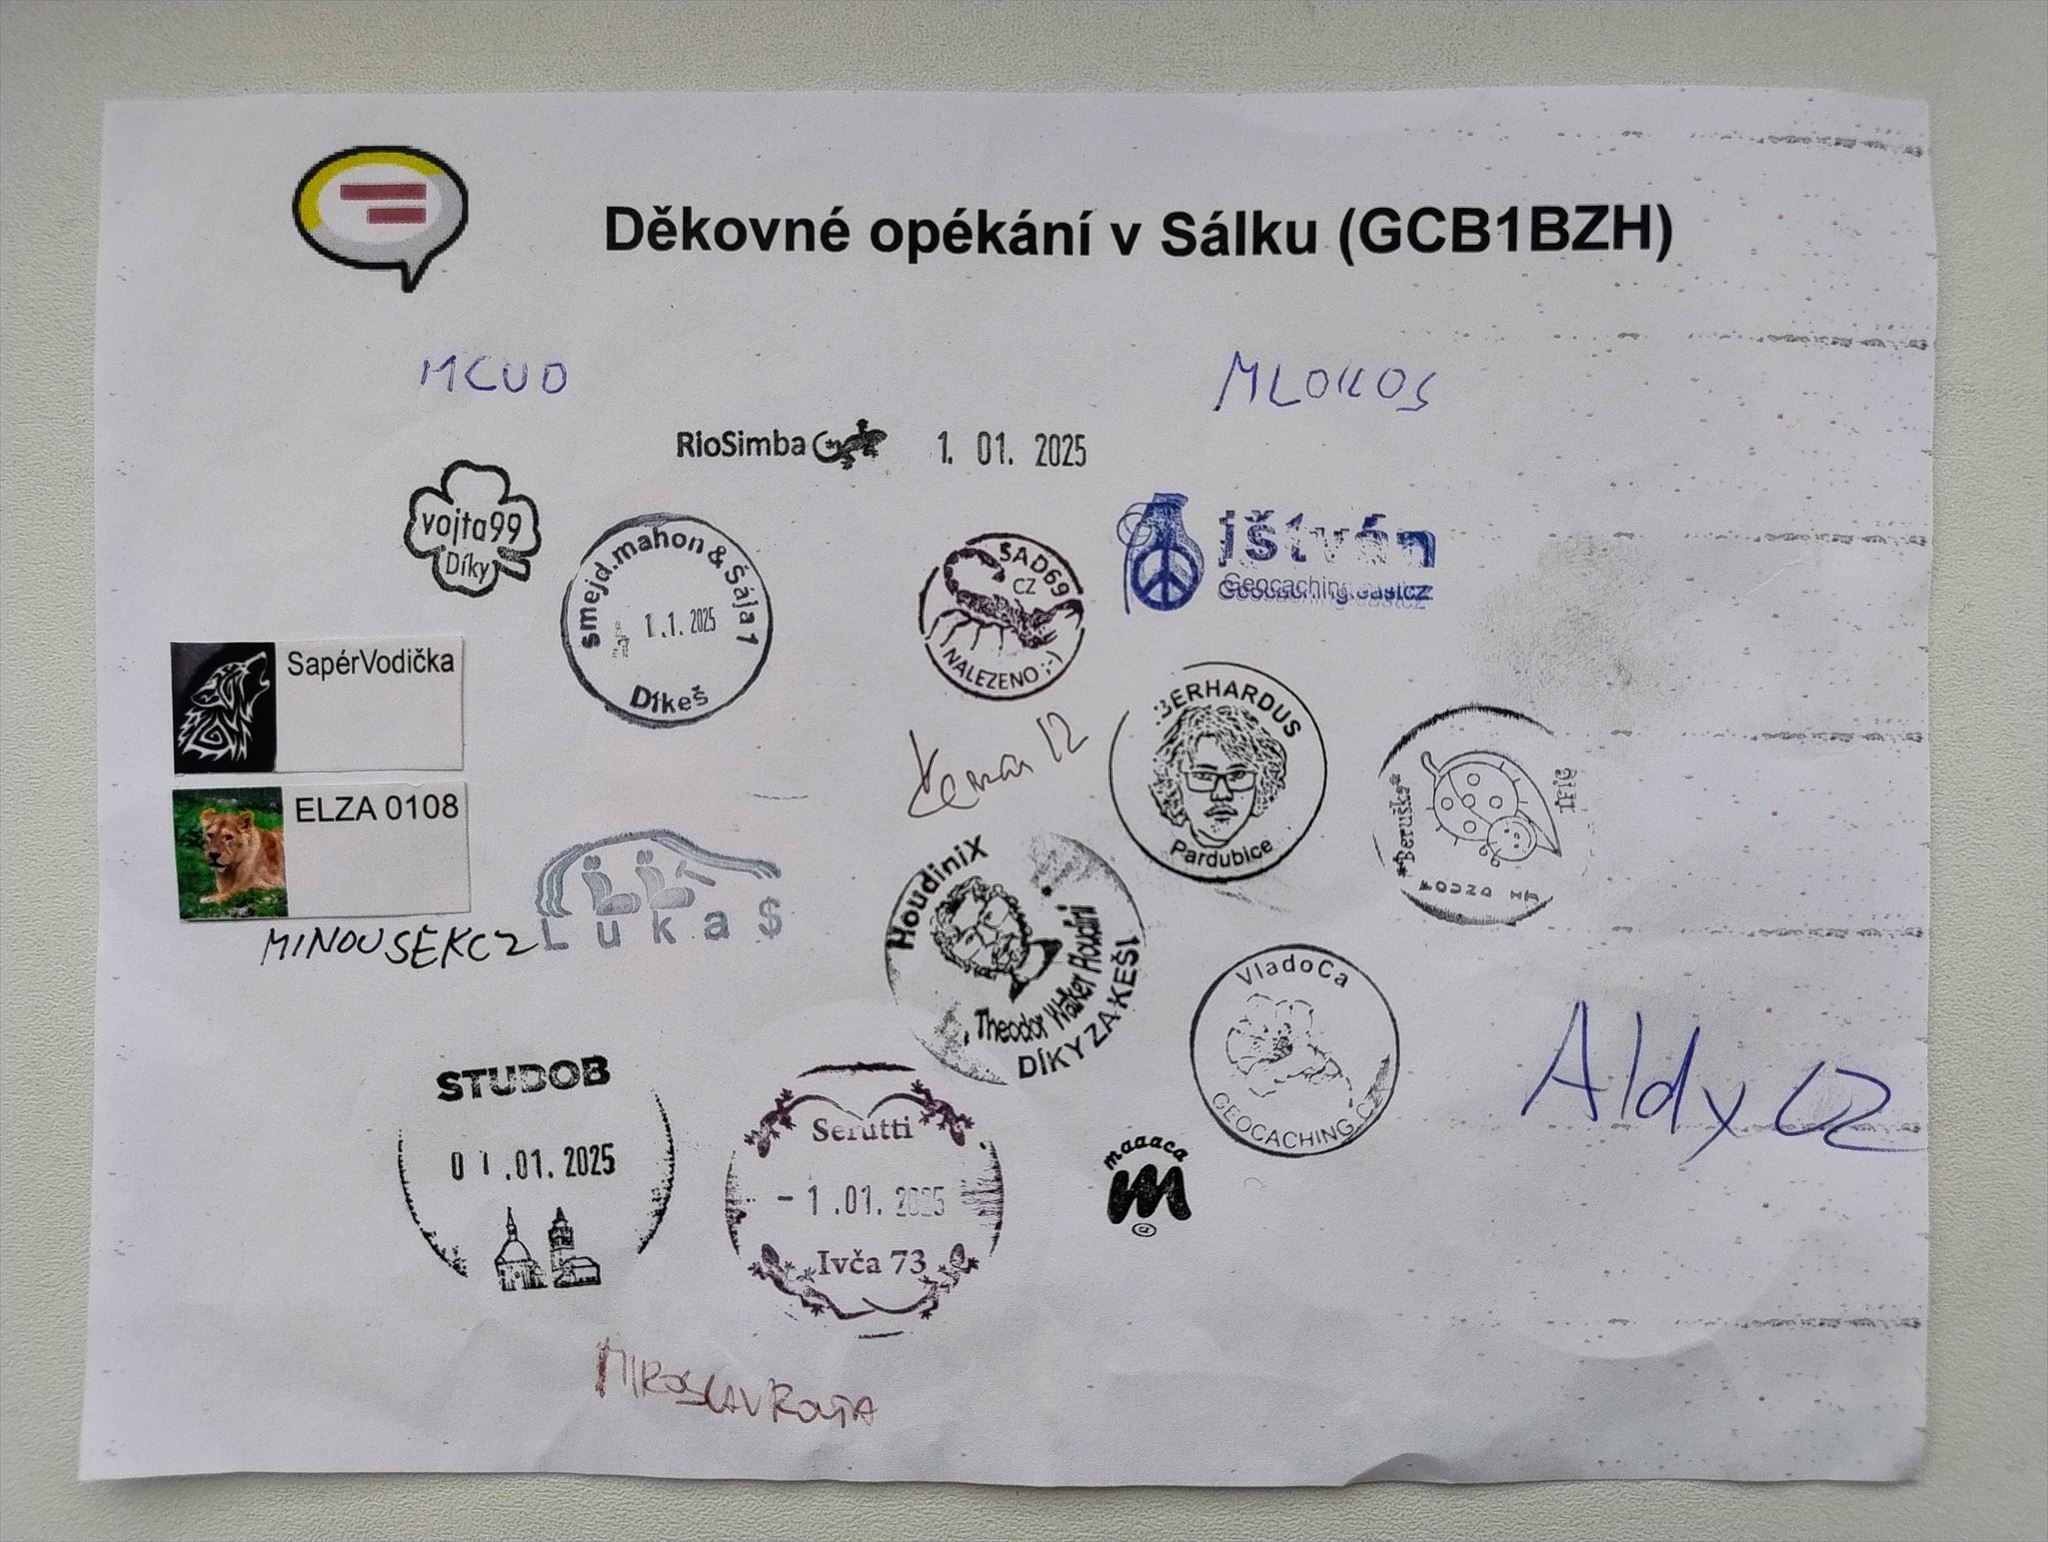 Děkovné opékání v Sálku (GCB1BZH)
MCUD
MLOKOS
RioSimba 1. 01. 2025
vojta99
Díky
smejd.mahon & Šája1
1.1. 2025
Díkeš
SAD69
CZ
NALEZENO :-)
ištván
Geocaching.eastcz
SapérVodička
ELZA 0108
MINOUSEKCZ
Lukaš
12
BERHARDUS
Pardubice
*Beruška*
HoudiniX
Theodor Walker Houdini
DÍKY ZA KEŠ!
VladoCa
GEOCACHING.CZ
Aldy CZ
STUDOB
01.01. 2025
Serutti
- 1.01. 2025
Ivča 73
maaaca
m
MIROSLAV